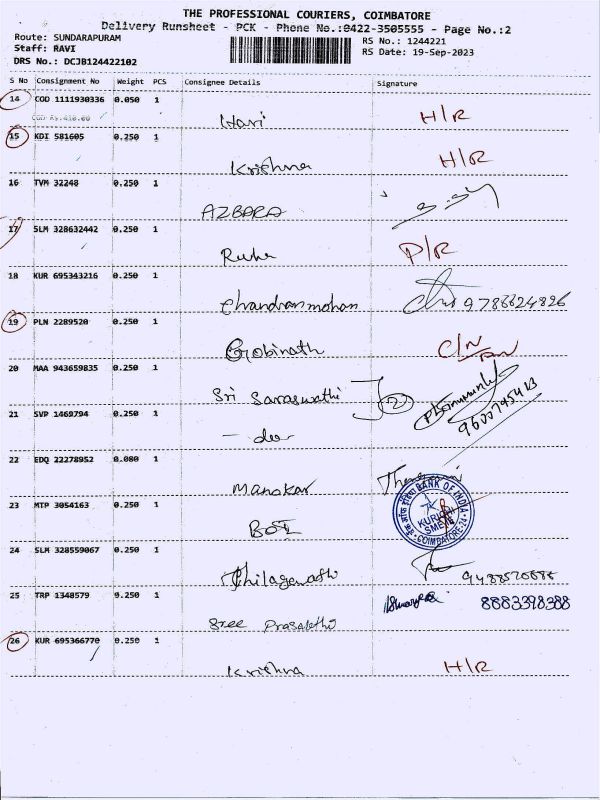 THE PROFESSIONAL COURIERS, COIMBATORE
Delivery Runsheet - PCK - Phone No.:0422-3505555 - Page No.:2
Route: SUNDARAPURAM RS No.: 1244221
Staff: RAVI RS Date: 19-Sep-2023
DRS No.: DCJB124422102
S No Consignment No Weight PCS Consignee Details Signature
14 COD 1111930336 0.050 1
COD Rs.410.00
Hari H/R
15 KDI 581605 0.250 1
Krishna H/R
16 TVM 32248 0.250 1
AZBARA
17 SLM 328632442 0.250 1
P/R
18 KUR 695343216 0.250 1
Chandranmohan 9786624826
19 PLN 2289520 0.250 1
Gobinath C/N
20 MAA 943659835 0.250 1
Sri Saraswathi 2
21 SVP 1469794 0.250 1
9600795413
- do -
22 EDQ 22278952 0.080 1
Manokar
23 MTP 3054163 0.250 1
BOI
BANK OF INDIA
KURICHI
SME
COIMBATORE-24
24 SLM 328559067 0.250 1
Thilagavathi
25 TRP 1348579 0.250 1
8883398388
Sree Prasakthi
26 KUR 695366770 0.250 1
Krishna H/R